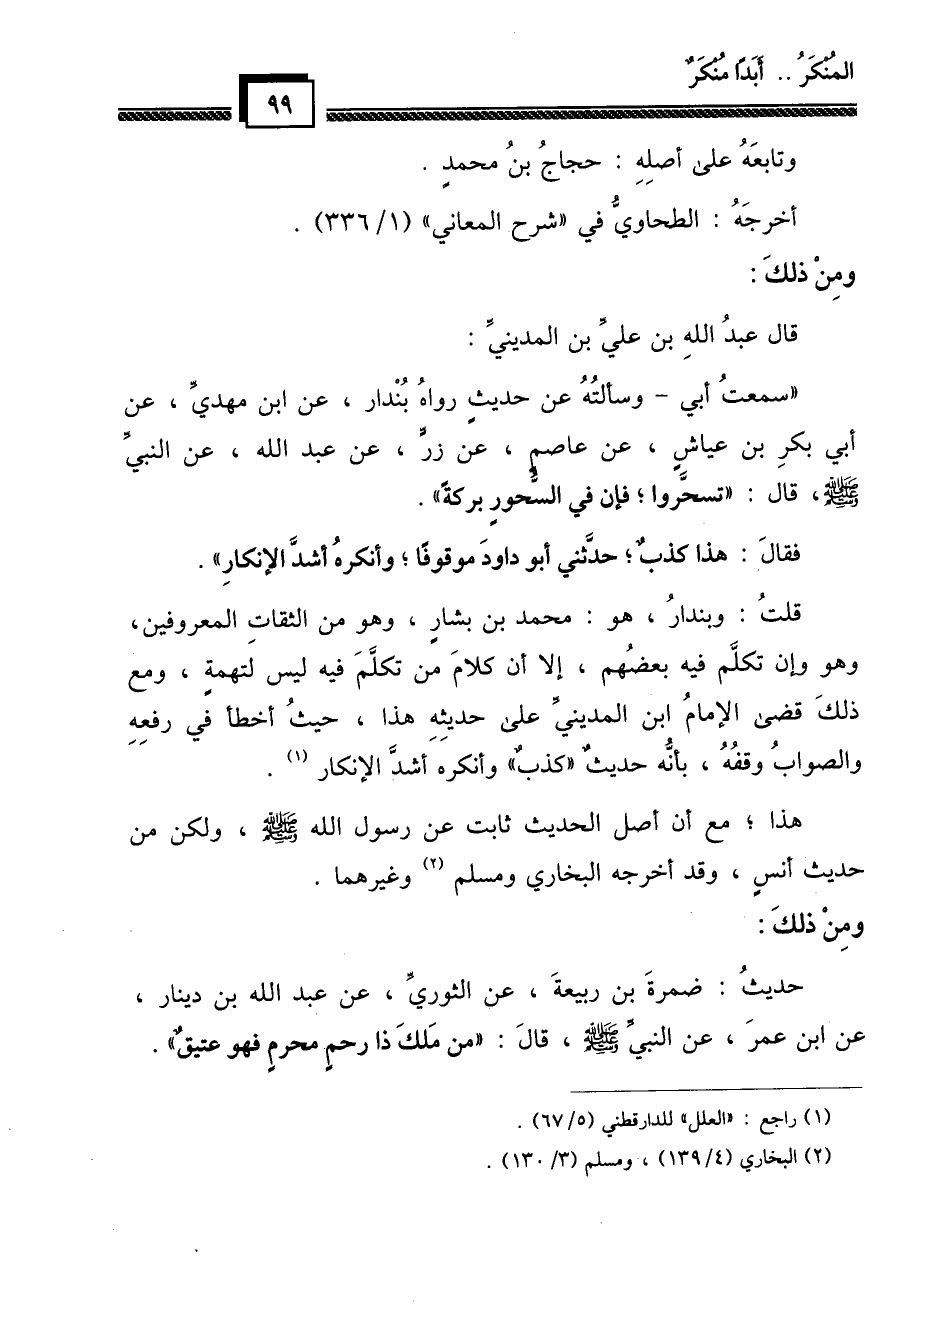 المُنْكَرُ .. أَبَدًا مُنْكَرٌ
٩٩
وتابعَهُ على أصلِهِ : حجاجُ بنُ محمدٍ .
أخرجَهُ : الطحاويُّ في «شرح المعاني» (١/ ٣٣٦) .
ومِنْ ذلكَ :
قال عبدُ اللهِ بن عليِّ بن المدينيِّ :
«سمعتُ أبي – وسألتُهُ عن حديثٍ رواهُ بُنْدار ، عن ابن مهديِّ ، عن
أبي بكرِ بن عياشٍ ، عن عاصمٍ ، عن زرٍّ ، عن عبد الله ، عن النبيِّ
ﷺ، قال : «تسحَّروا ؛ فإن في السُّحورِ بركةً» .
فقالَ : هذا كذبٌ ؛ حدَّثني أبو داودَ موقوفًا ؛ وأنكرهُ أشدَّ الإنكارِ» .
قلتُ : وبندارُ ، هو : محمد بن بشارٍ ، وهو من الثقاتِ المعروفين،
وهو وإن تكلَّم فيه بعضُهم ، إلا أن كلامَ من تكلَّمَ فيه ليس لتهمةٍ ، ومع
ذلكَ قضى الإمامُ ابن المدينيِّ على حديثِهِ هذا ، حيثُ أخطأ في رفعِهِ
والصوابُ وقفُهُ ، بأنَّه حديثٌ «كذبٌ» وأنكره أشدَّ الإنكار (١) .
هذا ؛ مع أن أصل الحديث ثابت عن رسول الله ﷺ ، ولكن من
حديث أنسٍ ، وقد أخرجه البخاري ومسلم (٢) وغيرهما .
ومِنْ ذلكَ :
حديثُ : ضمرةَ بن ربيعةَ ، عن الثوريِّ ، عن عبد الله بن دينار ،
عن ابن عمرَ ، عن النبيِّ ﷺ ، قالَ : «من مَلكَ ذا رحمٍ محرمٍ فهو عتيقٌ» .
(١) راجع : «العلل» للدارقطني (٥/ ٦٧) .
(٢) البخاري (٤/ ١٣٩) ، ومسلم (٣/ ١٣٠) .